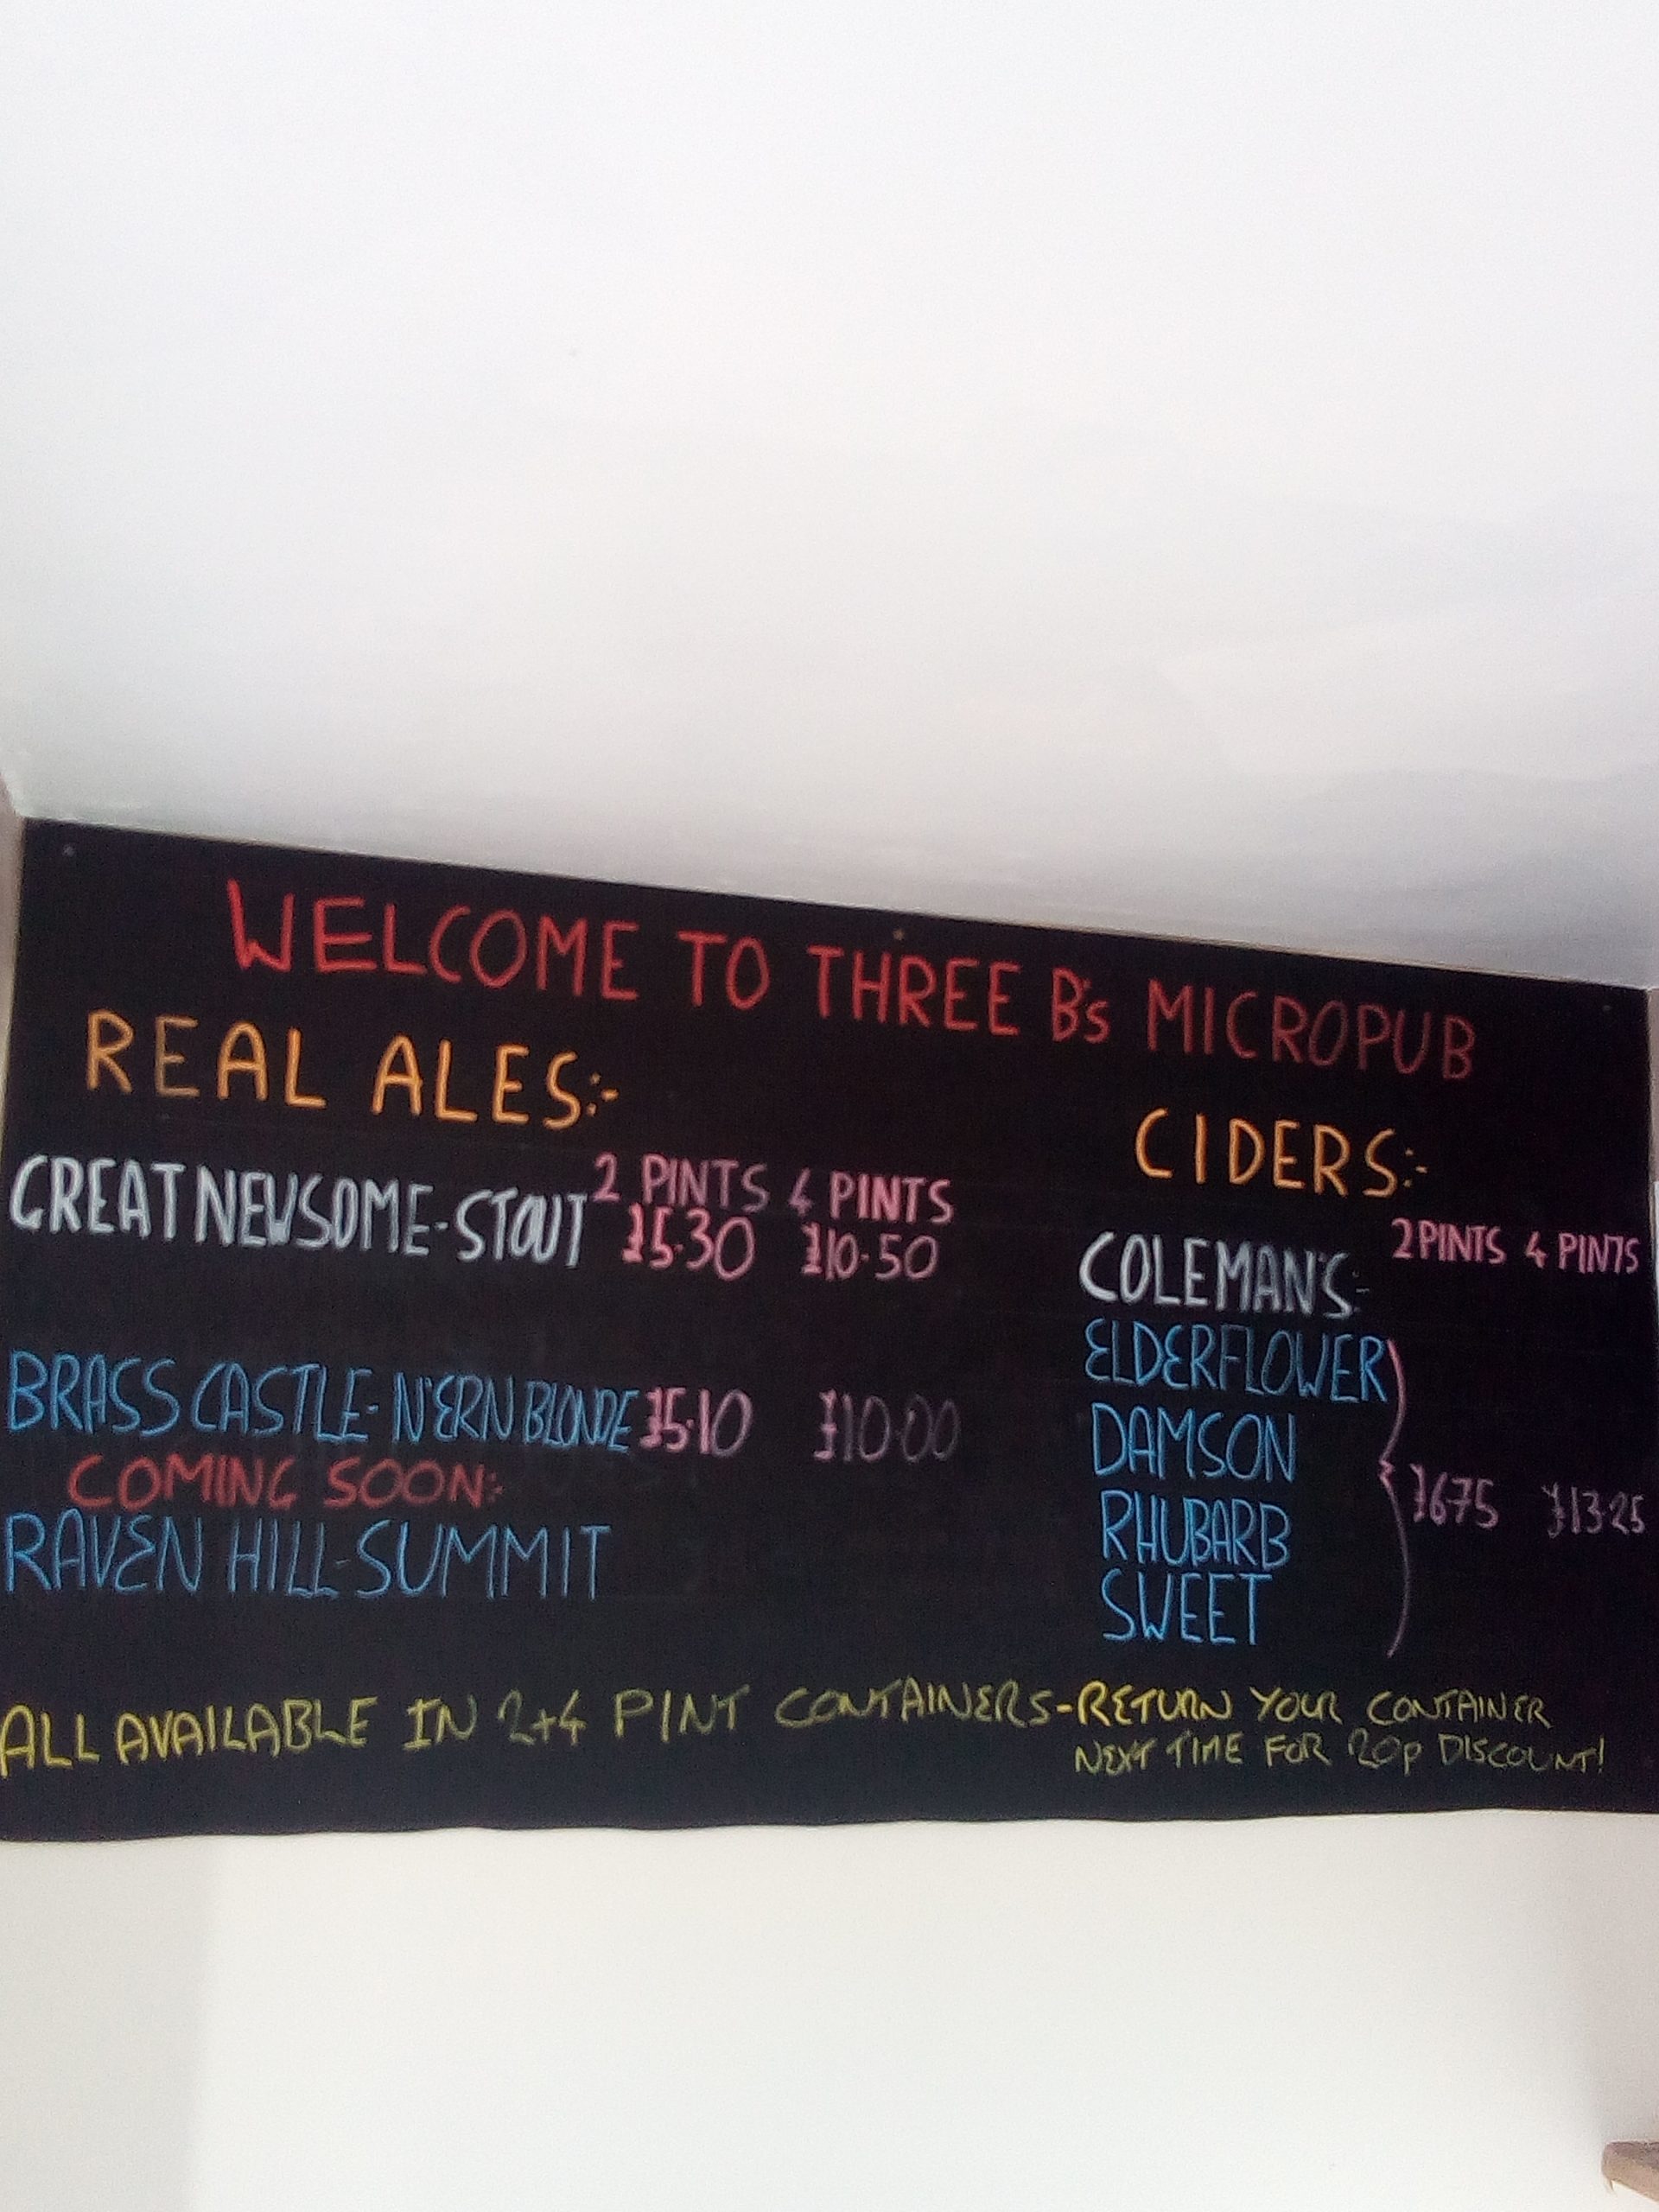 WELCOME TO THREE B's MICROPUB
REAL ALES:-
2 PINTS 4 PINTS
GREAT NEWSOME-STOUT £5.30 £10.50
BRASS CASTLE-N'ERN BLONDE £5.10 £10.00
COMING SOON:
RAVEN HILL-SUMMIT
CIDERS:-
2 PINTS 4 PINTS
COLEMAN'S:-
ELDERFLOWER
DAMSON
£6.75 £13.25
RHUBARB
SWEET
ALL AVAILABLE IN 2+4 PINT CONTAINERS-RETURN YOUR CONTAINER
NEXT TIME FOR 20p DISCOUNT!